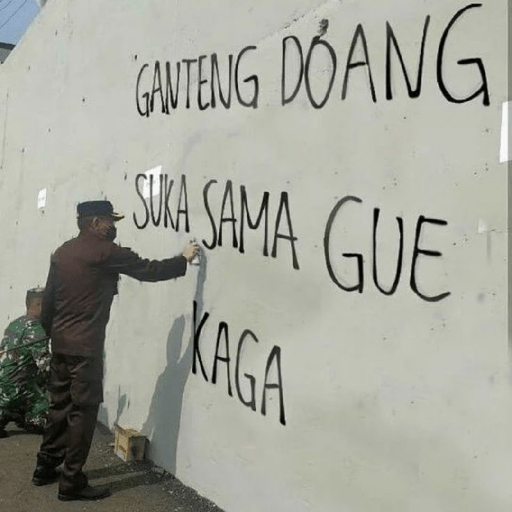 GANTENG DOANG
SUKA SAMA GUE
KAGA